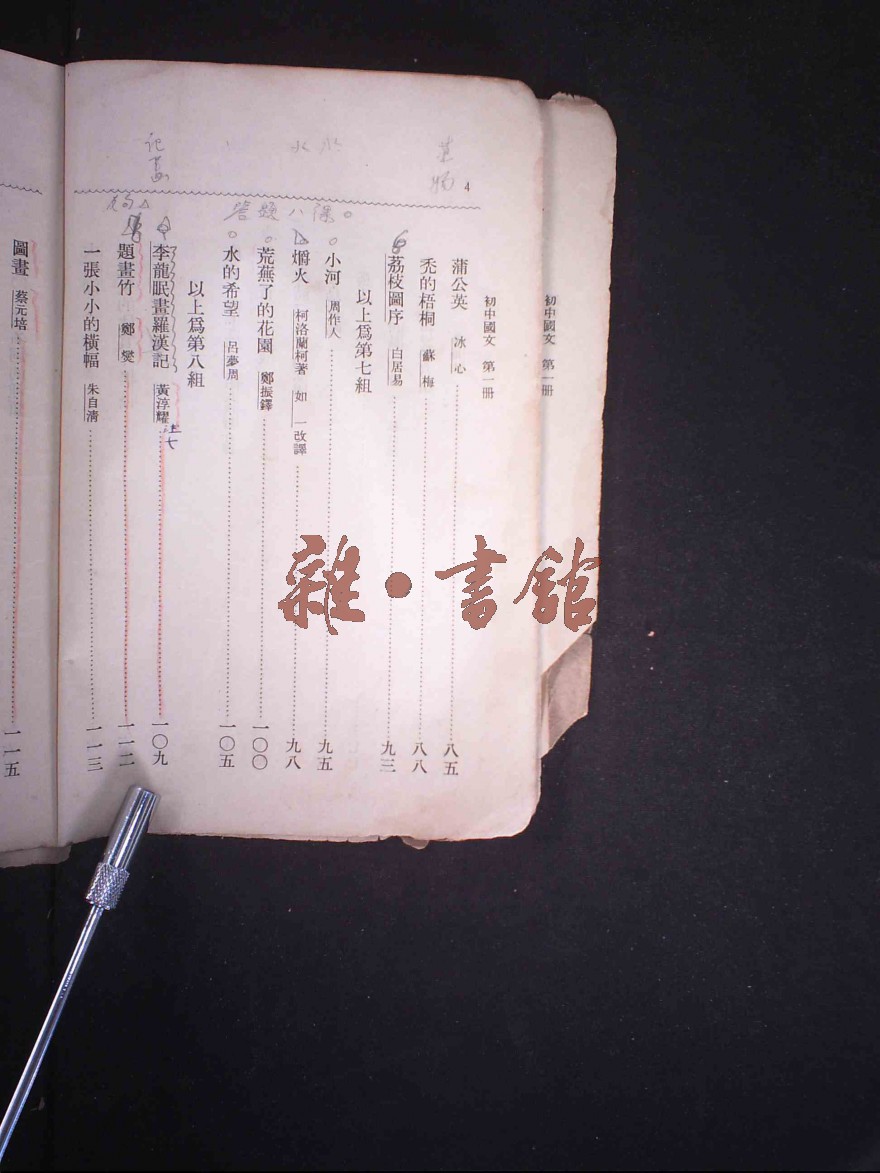 4
初中國文　第一册
初中國文　第一册
蒲公英　冰心……八五
禿的梧桐　蘇梅……八八
荔枝圖序　白居易……九三
以上爲第七組
小河　周作人……九五
爝火　柯洛蘭柯著　如一改譯……九八
荒蕪了的花園　鄭振鐸……一〇〇
水的希望　呂夢周……一〇五
以上爲第八組
李龍眠畫羅漢記　黃淳耀……一〇九
題畫竹　鄭燮……一一二
一張小小的橫幅　朱自清……一一三
圖畫　蔡元培……一一五
記畫
雜·書館